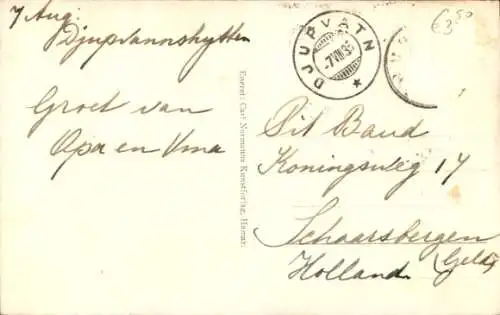 7 Aug.
Djupvannshytten
Groet van
Opa en Oma
DJUPVATN
-7 VIII 3
€3 50
Eneret: Carl Normanns Kunstforlag, Hamar.
Pit Baud
Koningsweg 17
Schaarsbergen
(Geld)
Holland